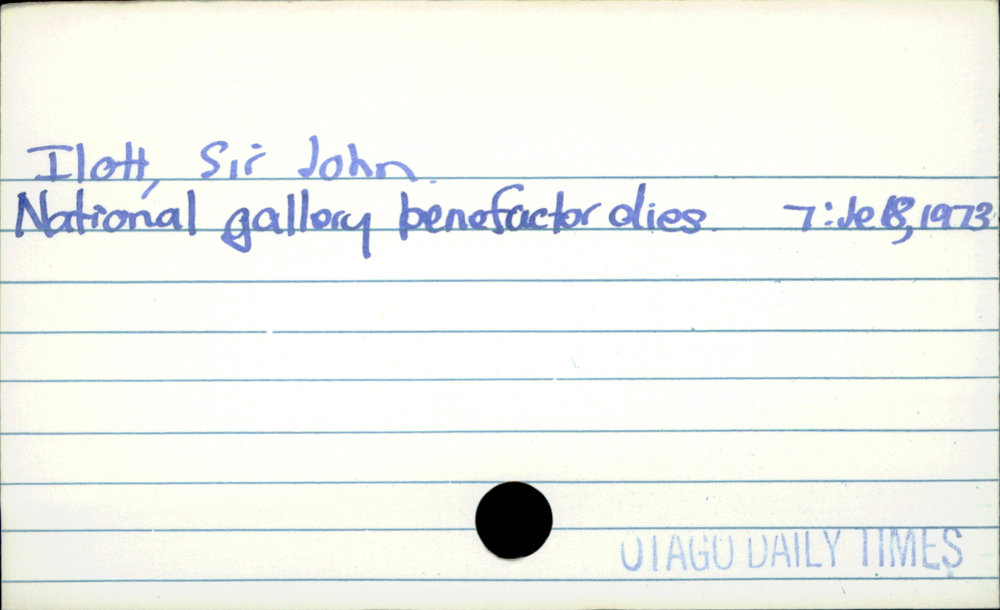 Ilott, Sir John.
National gallery benefactor dies. 7:Je 18, 1973
OTAGO DAILY TIMES